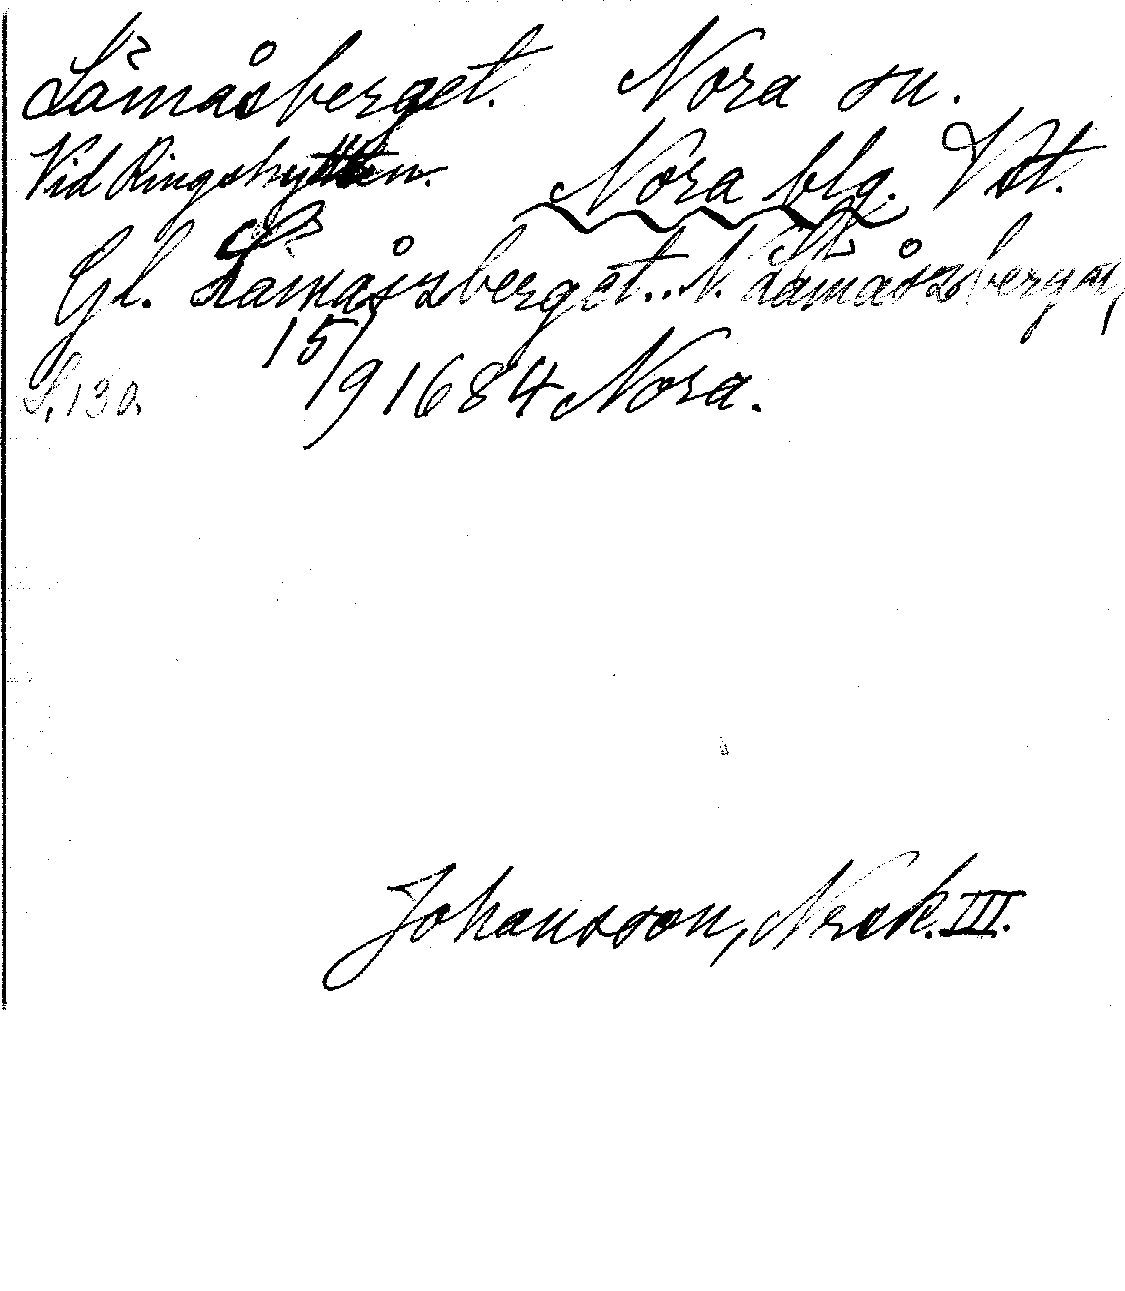 Låmåsberget. Nora sn.
Vid Ringshyttan. Nora blg. Vstl.
Gl. Låmåszberget.. N. Låmåszberget,
15/9 1684 Nora.
S. 130.
Johansson, Nrsk. III.